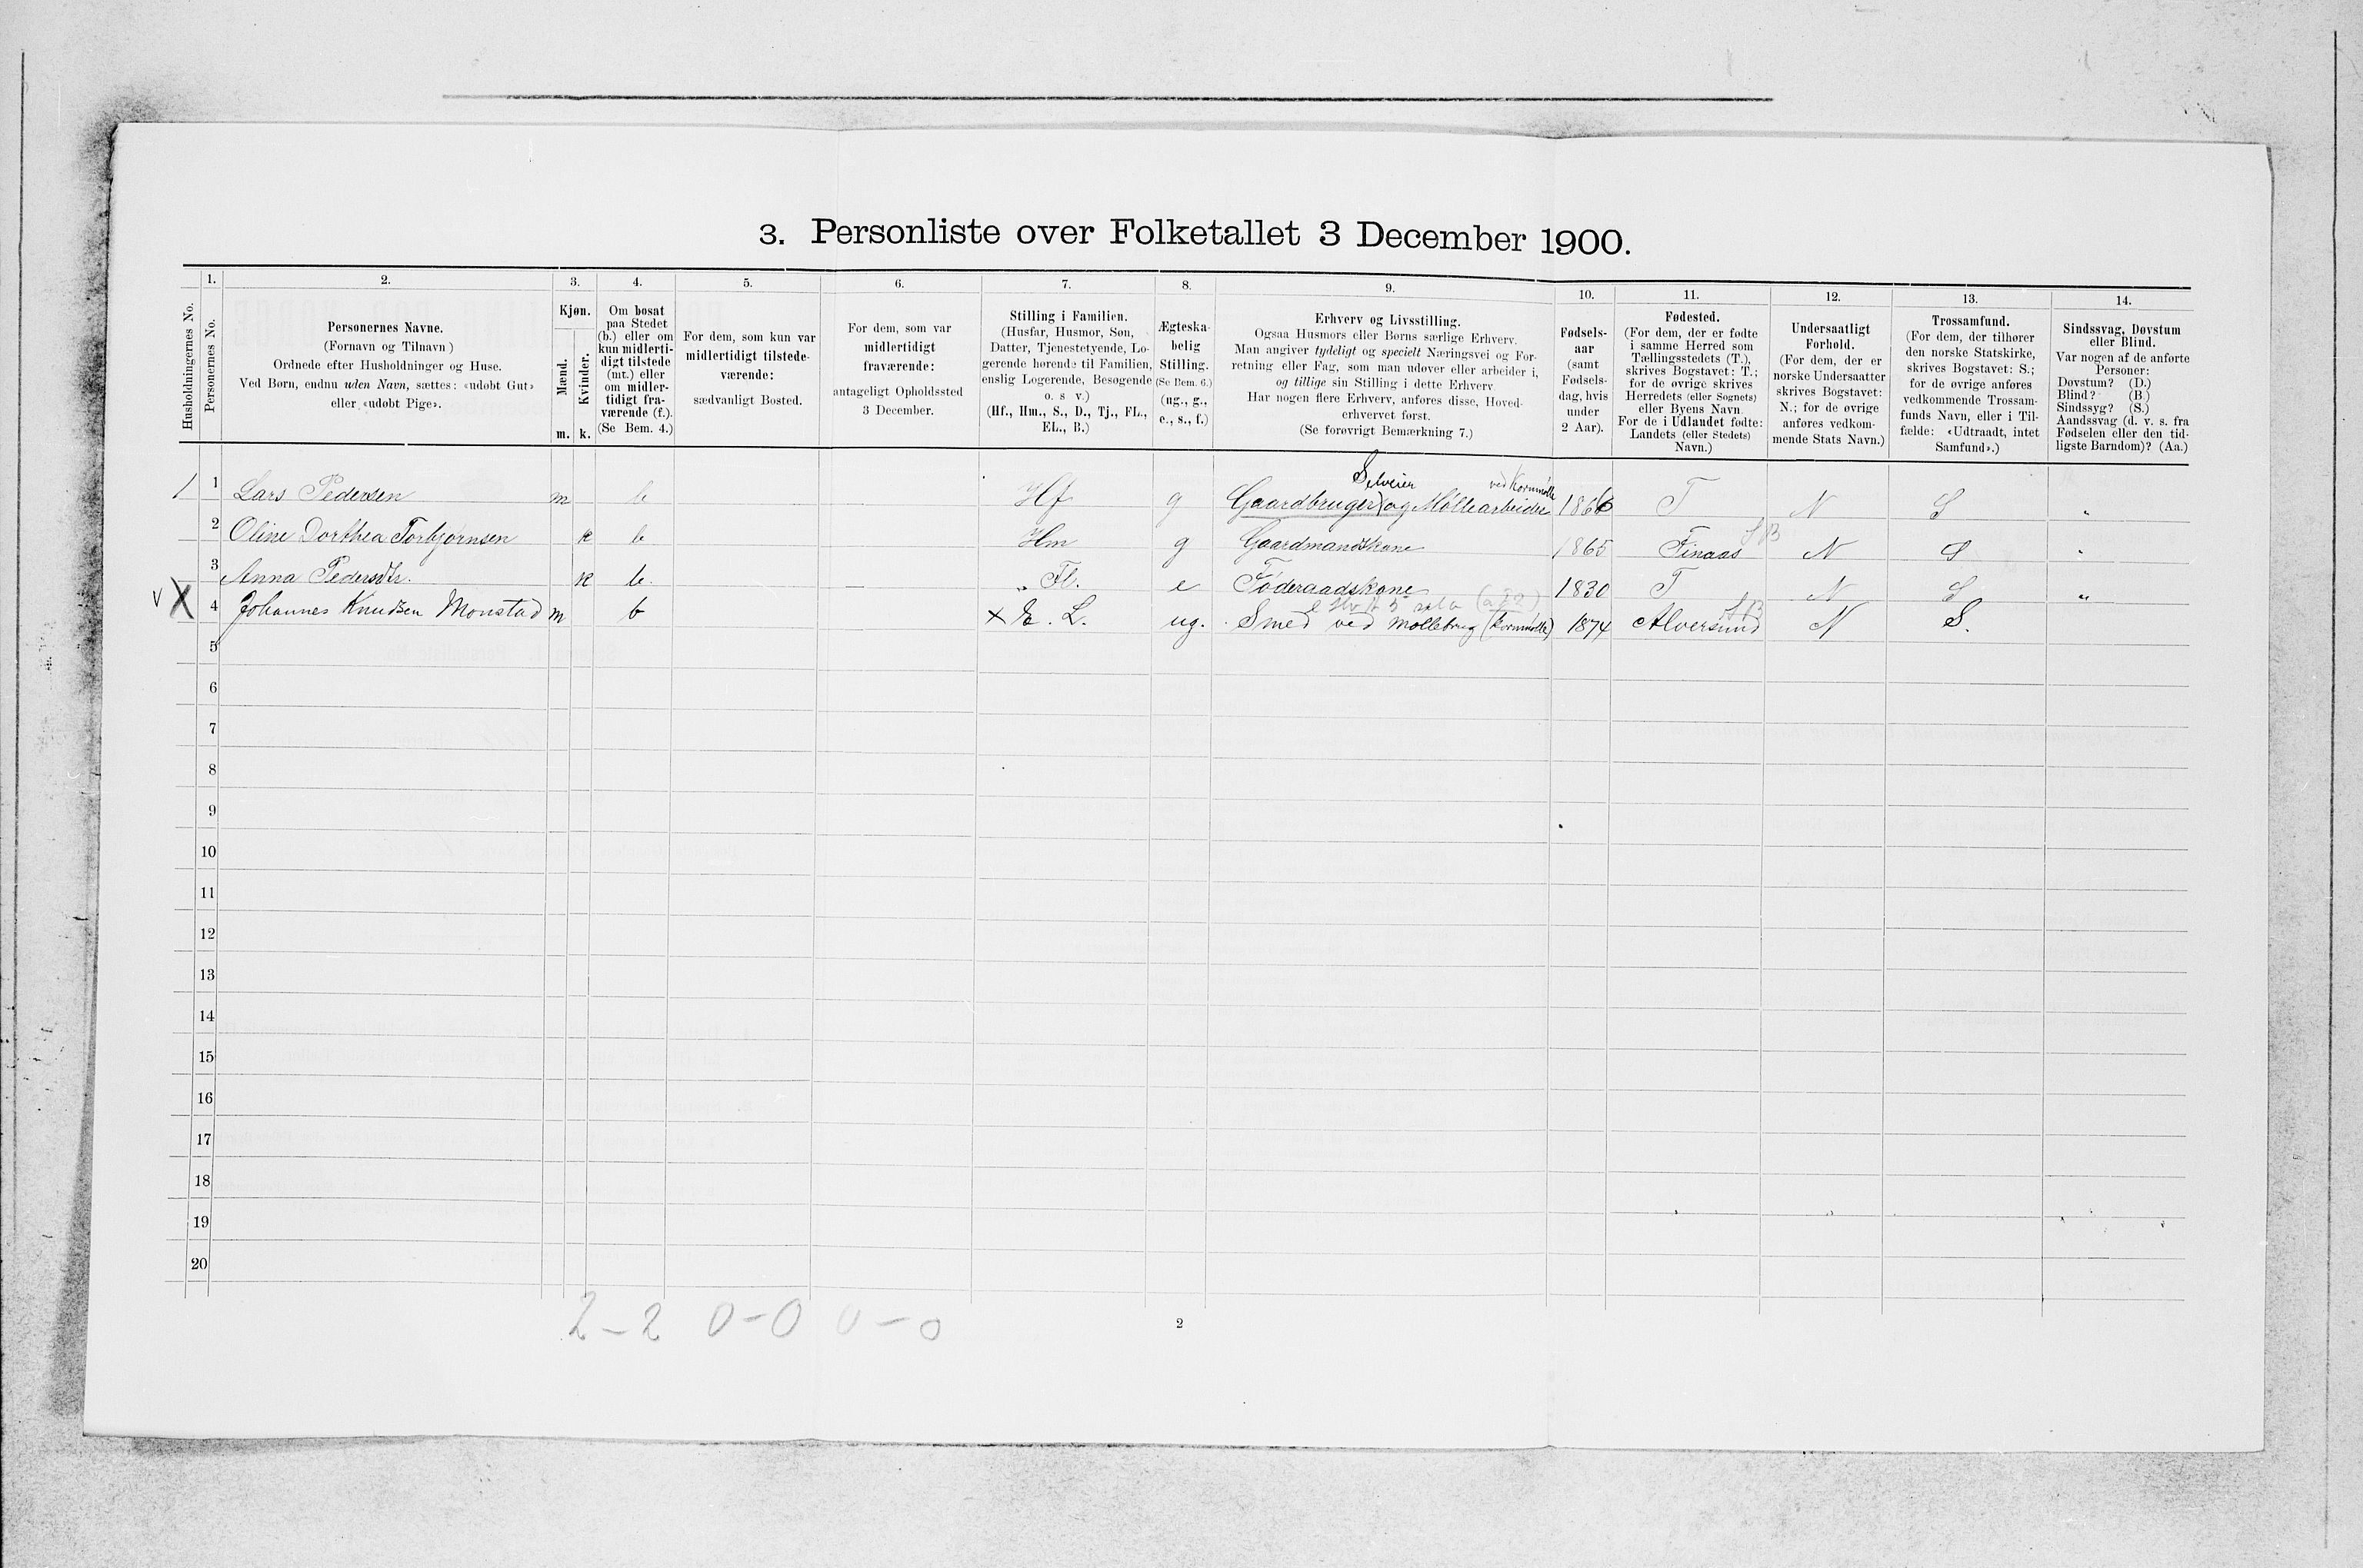 3. Personliste over Folketallet 3 December 1900.
1. 2. 3. 4. 5. 6. 7. 8. 9. 10. 11. 12. 13. 14.
Husholdningernes No.
Personernes No.
Personernes Navne.
(Fornavn og Tilnavn)
Ordnede efter Husholdninger og Huse.
Ved Børn, endnu uden Navn, sættes: «udøbt Gut»
eller «udøbt Pige».
Kjøn.
Mænd.
Kvinder.
m. k.
Om bosat
paa Stedet
(b.) eller om
kun midlerti-
digt tilstede
(mt.) eller
om midler-
tidigt fra-
værende (f.).
(Se Bem. 4.)
For dem, som kun var
midlertidigt tilstede-
værende:
sædvanligt Bosted.
For dem, som var
midlertidigt
fraværende:
antageligt Opholdssted
3 December.
Stilling i Familien.
(Husfar, Husmor, Søn,
Datter, Tjenestetyende, Lo-
gerende hørende til Familien,
enslig Logerende, Besøgende
o. s. v.)
(Hf., Hm., S., D., Tj., FL.,
EL., B.)
Ægteska-
belig
Stilling.
(Se Bem. 6.)
(ug., g.,
e., s., f.)
Erhverv og Livsstilling.
Ogsaa Husmors eller Børns særlige Erhverv.
Man angiver tydeligt og specielt Næringsvei og For-
retning eller Fag, som man udøver eller arbeider i,
og tillige sin Stilling i dette Erhverv.
Har nogen flere Erhverv, anføres disse, Hoved-
erhvervet først.
(Se forøvrigt Bemærkning 7.)
Fødsels-
aar
(samt
Fødsels-
dag, hvis
under
2 Aar).
Fødested.
(For dem, der er fødte
i samme Herred som
Tællingsstedets (T.),
skrives Bogstavet: T.;
for de øvrige skrives
Herredets (eller Sognets)
eller Byens Navn.
For de i Udlandet fødte:
Landets (eller Stedets)
Navn.)
Undersaatligt
Forhold.
(For dem, der er
norske Undersaatter
skrives Bogstavet:
N.; for de øvrige
anføres vedkom-
mende Stats Navn.)
Trossamfund.
(For dem, der tilhører
den norske Statskirke,
skrives Bogstavet: S.;
for de øvrige anføres
vedkommende Trossam-
funds Navn, eller i Til-
fælde: «Udtraadt, intet
Samfund».)
Sindssvag, Døvstum
eller Blind.
Var nogen af de anførte
Personer:
Døvstum? (D.)
Blind? (B.)
Sindssyg? (S.)
Aandssvag (d. v. s. fra
Fødselen eller den tid-
ligste Barndom)? (Aa.)
Selveier ved Kornmølle
1 1 Lars Pedersen m b Hf g Gaardbruger og Møllearbeider 1866 T N S "
2 Oline Dorthea Torbjørnsen k b Hm g Gaardmandskone 1865 Finaas SB N S "
3 Anna Pedersdtr. k b. „ Fl. e Føderaadskone 1830 T N S "
V X 4 Johannes Knudsen Monstad m b x E. L. ug. Smed ved Møllebrug (Kornmølle) 1874 Alversund SB N S.
5
6
7
8
9
10
11
12
13
14
15
16
17
18
19
20
2-2 0-0 0-0
2